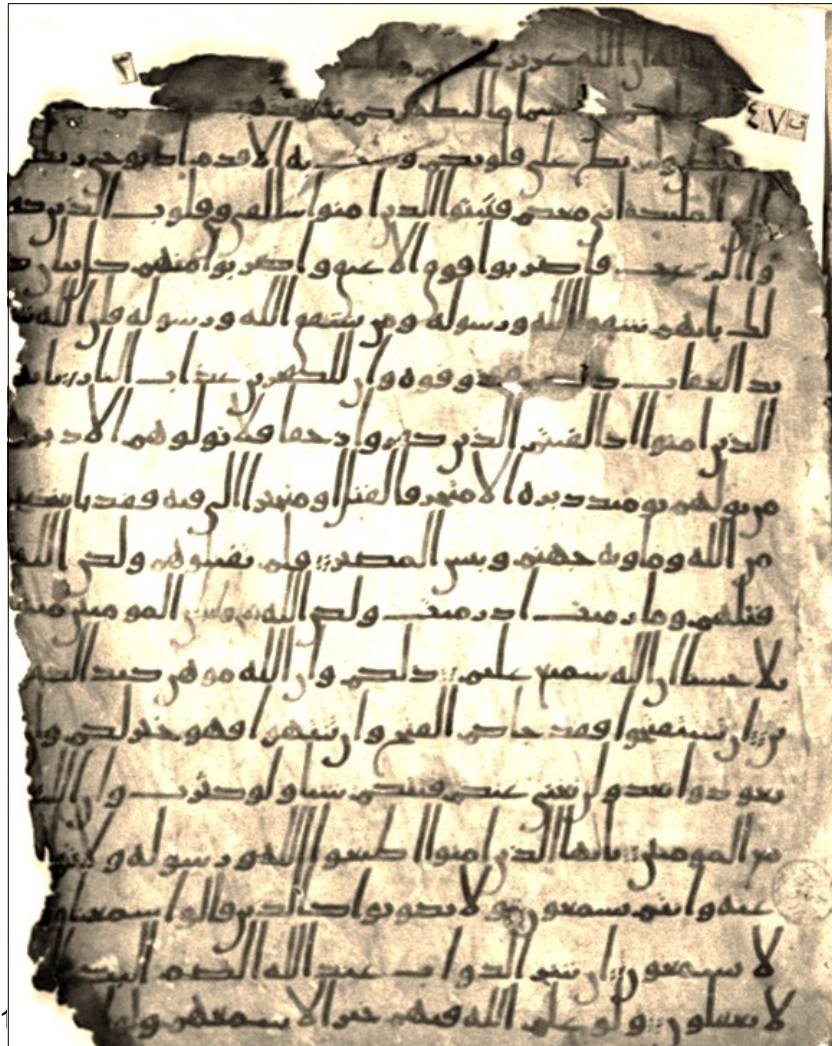 ٣
ان الله عزيز
٤٧ ق
السما ما ليطهركم به
وليربط على قلوبكم ويثبت به الاقدم اذ يوحي ربك
الى الملئكة اني معكم فثبتوا الذين امنوا سالقي في قلوب الذين كفر
وا الرعب فاضربوا فوق الاعنق واضربوا منهم كل بنان ذ
لك بانهم شقوا الله ورسوله ومن يشقق الله ورسوله فان الله شد
يد العقاب ذلكم فذوقوه وان للكفرين عذاب النار يايها
الذين امنوا اذا لقيتم الذين كفروا زحفا فلا تولوهم الادبر و
من يولهم يومئذ دبره الا متحرفا لقتل او متحيزا الى فية فقد با بغضب
من الله وماويه جهنم وبيس المصير فلم تقتلوهم ولكن الله
قتلهم وما رميت اذ رميت ولكن الله رمى وليبلي المومنين منه
بلا حسنا ان الله سميع عليم ذلكم وان الله موهن كيد الكفر
ين ان تستفتحوا فقد جاكم الفتح وان تنتهوا فهو خير لكم وان
تعودوا نعد ولن تغني عنكم فيتكم شيا ولو كثرت وان الله
مع المومنين يايها الذين امنوا اطيعوا الله ورسوله ولا تولوا
عنه وانتم تسمعون ولا تكونوا كالذين قالوا سمعنا و
هم لا يسمعون ان شر الدواب عند الله الصم البكم
لا يعقلون ولو علم الله فيهم خيرا لاسمعهم ولو